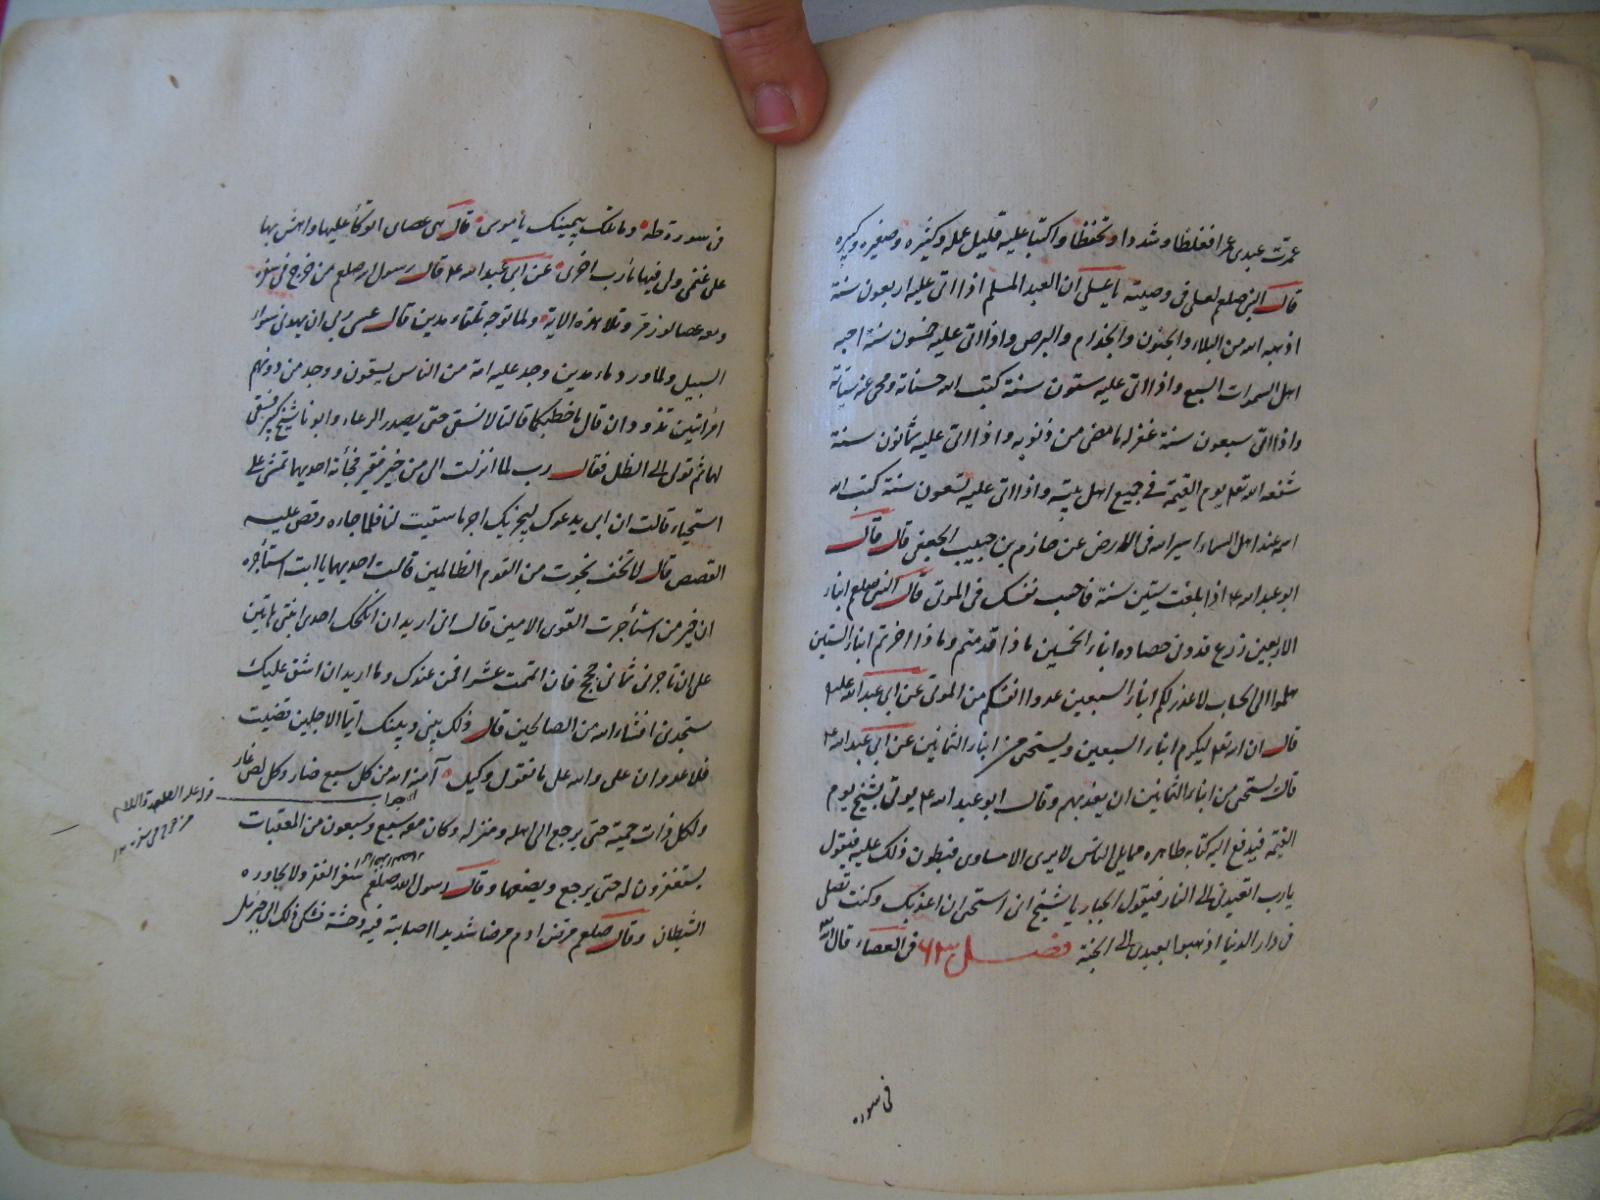 عمرت عبدى عمرا فغلظا وشددا وتحفظا واكتبا عليه قليل عمله وكثيره وصغيره وكبيره
قال النبى صلعم لعلى فى وصيته يا على ان العبد المسلم اذا اتى عليه اربعون سنة
اذهبه الله من البلاء والجنون والجذام والبرص واذا اتى عليه خمسون سنة احبه
اهل السموات السبع واذا اتى عليه ستون سنة كتب الله حسناته ومحى عنه سيئاته
واذا اتى سبعون سنة غفر له ما مضى من ذنوبه واذا اتى عليه ثمانون سنة
شفعه الله تعم يوم القيمة فى جميع اهل بيته واذا اتى عليه تسعون سنة كتب الله
اسمه عند اهل السماء اسير الله فى الارض عن حازم بن حبيب الجعفى قال قال
ابو عبد الله ع اذا بلغت ستين سنة فاحسب نفسك فى الموتى قال النبى صلعم ابناء
الاربعين زرع قد دنى حصاده ابناء الخمسين ماذا قدمتم وماذا اخرتم ابناء الستين
هلموا الى الحساب لا عذر لكم ابناء السبعين عدوا انفسكم من الموتى عن ابى عبد الله عليه
قال ان الله تعم ليكرم ابناء السبعين ويستحى من ابناء الثمانين عن ابى عبد الله ع
قال يستحى من ابناء الثمانين ان يعذبهم وقال ابو عبد الله ع يوتى بشيخ يوم
القيمة فيدفع اليه كتابه ظاهره مما يلى الناس لا يرى الا مساوى فيطول ذلك عليه فيقول
يا رب اتعيدنى الى النار فيقول الجبار يا شيخ انى استحى ان اعذبك وكنت تصلى
فى دار الدنيا اذهبوا بعبدى الى الجنة فصل فى العصاء قال الله
فى سوره
فى سورة طه وما تلك بيمينك يا موسى قال هى عصاى اتوكأ عليها واهش بها
على غنمى ولى فيها مأرب اخرى عن ابى عبد الله ع قال رسول الله صلعم من خرج فى سفره
ومعه عصا لوز مر وتلا هذه الاية ولما توجه تلقاء مدين قال عسى ربى ان يهدينى سواء
السبيل ولما ورد ماء مدين وجد عليه امة من الناس يسقون ووجد من دونهم
امرأتين تذودان قال ما خطبكما قالتا لا نسقى حتى يصدر الرعاء وابونا شيخ كبير فسقى
لهما ثم تولى الى الظل فقال رب لما انزلت الى من خير فقير فجأته احديهما تمشى على
استحياء قالت ان ابى يدعوك ليجزيك اجر ما سقيت لنا فلما جاءه وقص عليه
القصص قال لا تخف نجوت من القوم الظالمين قالت احديهما يا ابت استأجره
ان خير من استأجرت القوى الامين قال انى اريد ان انكحك احدى ابنتى هاتين
على ان تاجرنى ثمانى حجج فان اتممت عشرا فمن عندك وما اريد ان اشق عليك
ستجدنى انشاء الله من الصالحين قال ذلك بينى وبينك ايما الاجلين قضيت
فلا عدوان على والله على ما نقول وكيل آمنه الله من كل سبع ضار وكل لص عار
ولكل ذات حمة حتى يرجع الى اهله ومنزله وكان معه سبع وسبعون من المعقبات
يستغفرون له حتى يرجع ويضعها وقال رسول الله صلعم تنفى الفقر ولا يجاوره
الشيطان وقال صلعم مرض ادم مرضا شديدا اصابته فيه وحشة فشكى ذلك الى جبرئيل